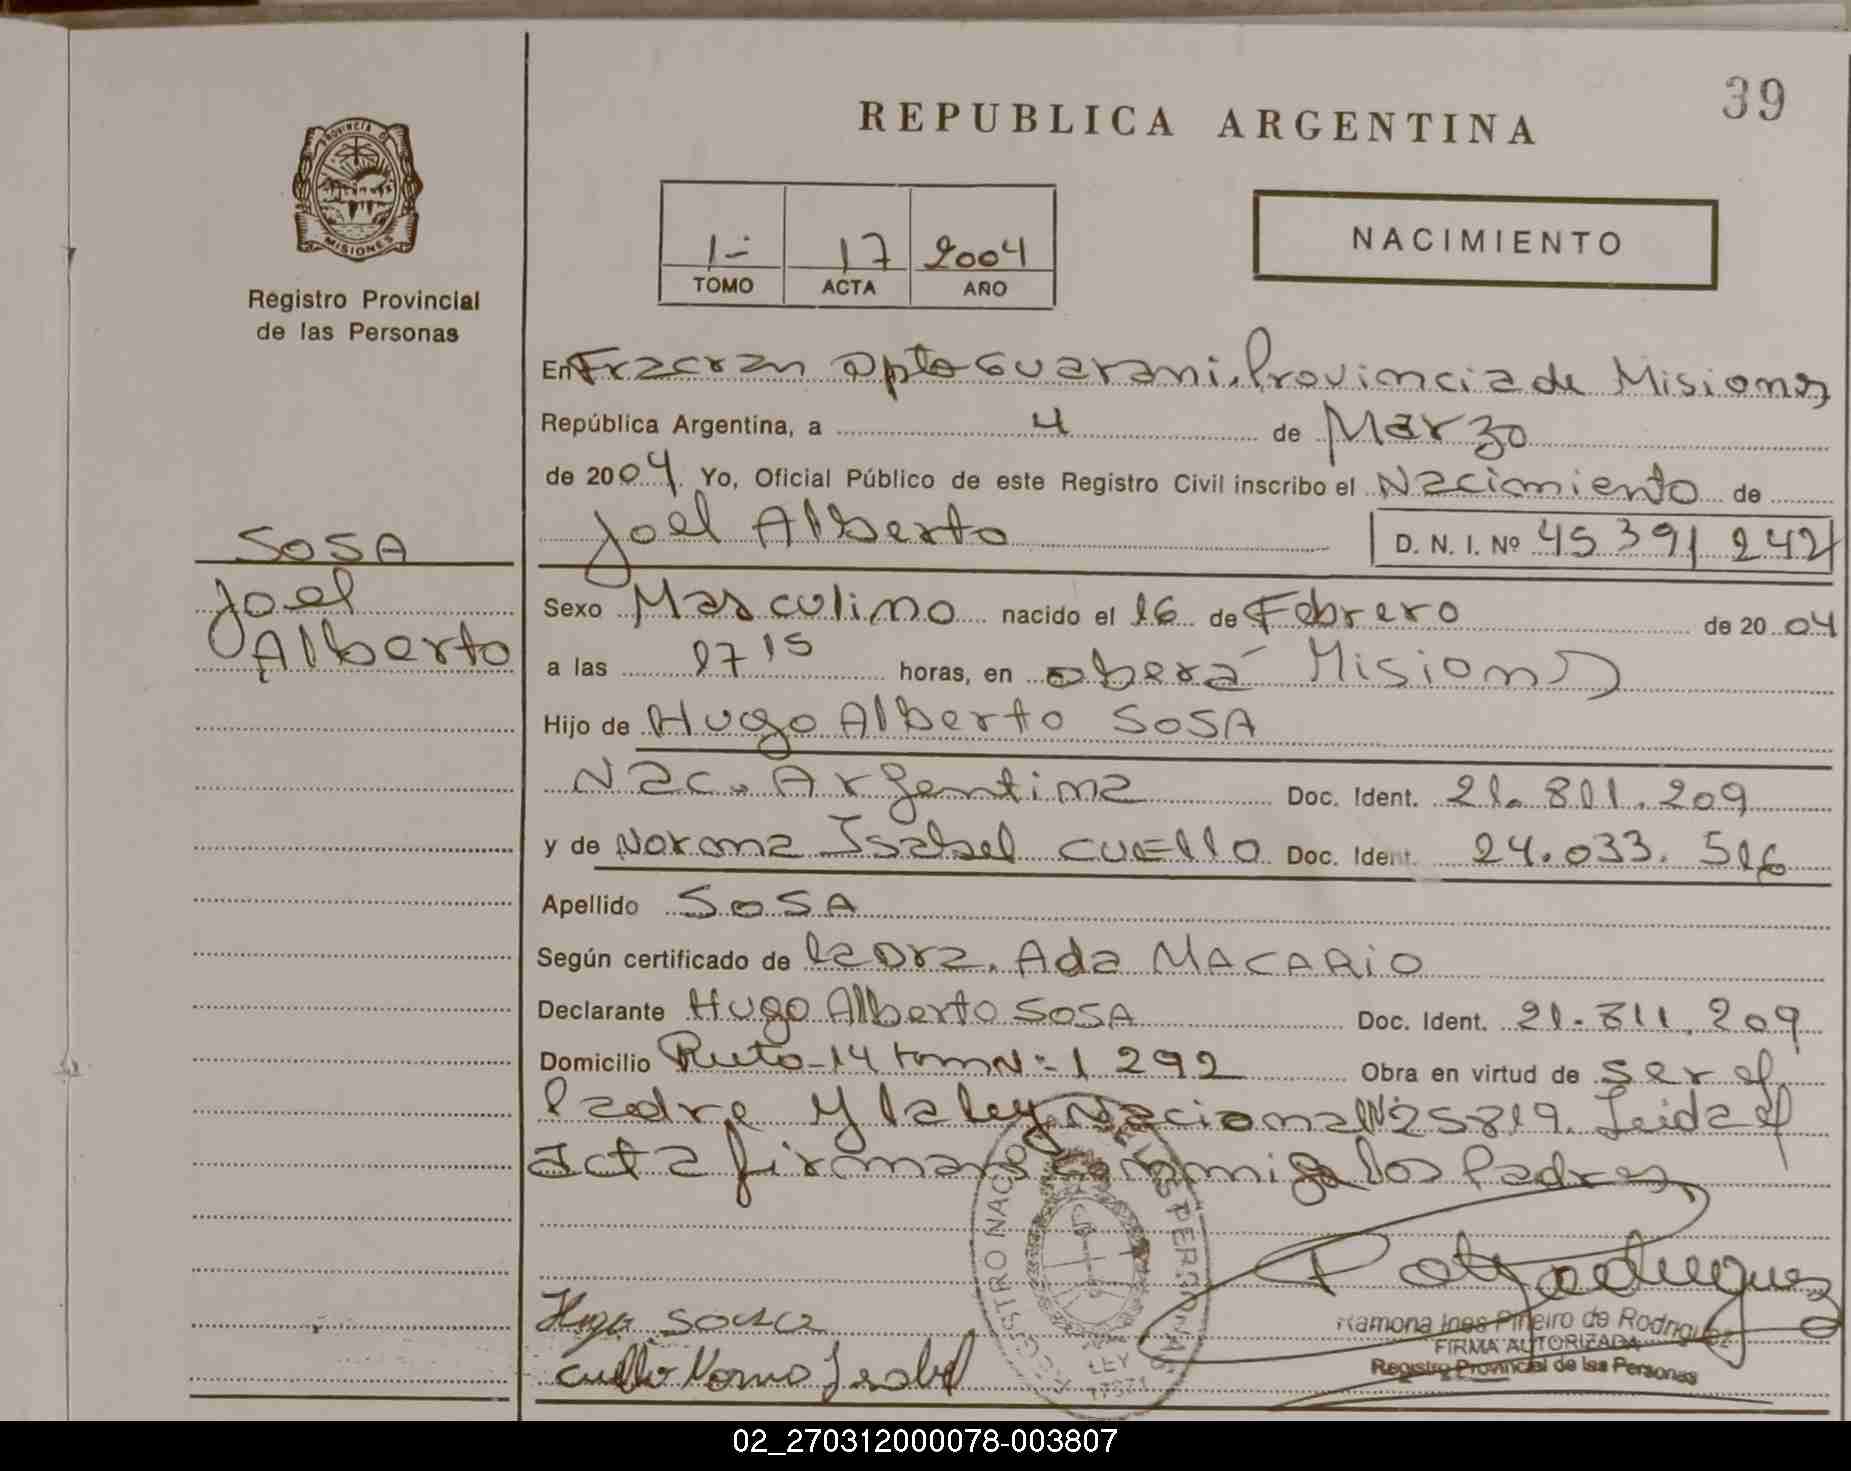 39
REPUBLICA ARGENTINA
PROVINCIA DE
MISIONES
Registro Provincial
de las Personas
1- 17 2004
TOMO ACTA AÑO
NACIMIENTO
En Fracran Dpto Guarani, Provincia de Misiones
República Argentina, a 4 de Marzo
de 2004. Yo, Oficial Público de este Registro Civil inscribo el Nacimiento de
Joel Alberto D. N. I. Nº 45 391 242
SOSA
Joel
Alberto
Sexo Masculino nacido el 16 de Febrero de 2004
a las 17 15 horas, en oberá Misiones
Hijo de Hugo Alberto SOSA
Nac. Argentina Doc. Ident. 21.811.209
y de Norma Isabel CUEllO Doc. Ident. 24.033.516
Apellido SOSA
Según certificado de la Dra. Ada MACARIO
Declarante Hugo Alberto SOSA Doc. Ident. 21.811.209
Domicilio Ruta-14 km N:-1 292 Obra en virtud de ser el
Padre y la ley Nacional Nº25819. Leida el
acta firman conmigo los Padres
Hugo Sosa
Cuello Norma Isabel
REGISTRO NACIONAL DE LAS PERSONAS
LEY
17671
Ramona Ines Piñeiro de Rodriguez
FIRMA AUTORIZADA
Registro Provincial de las Personas
02_270312000078-003807